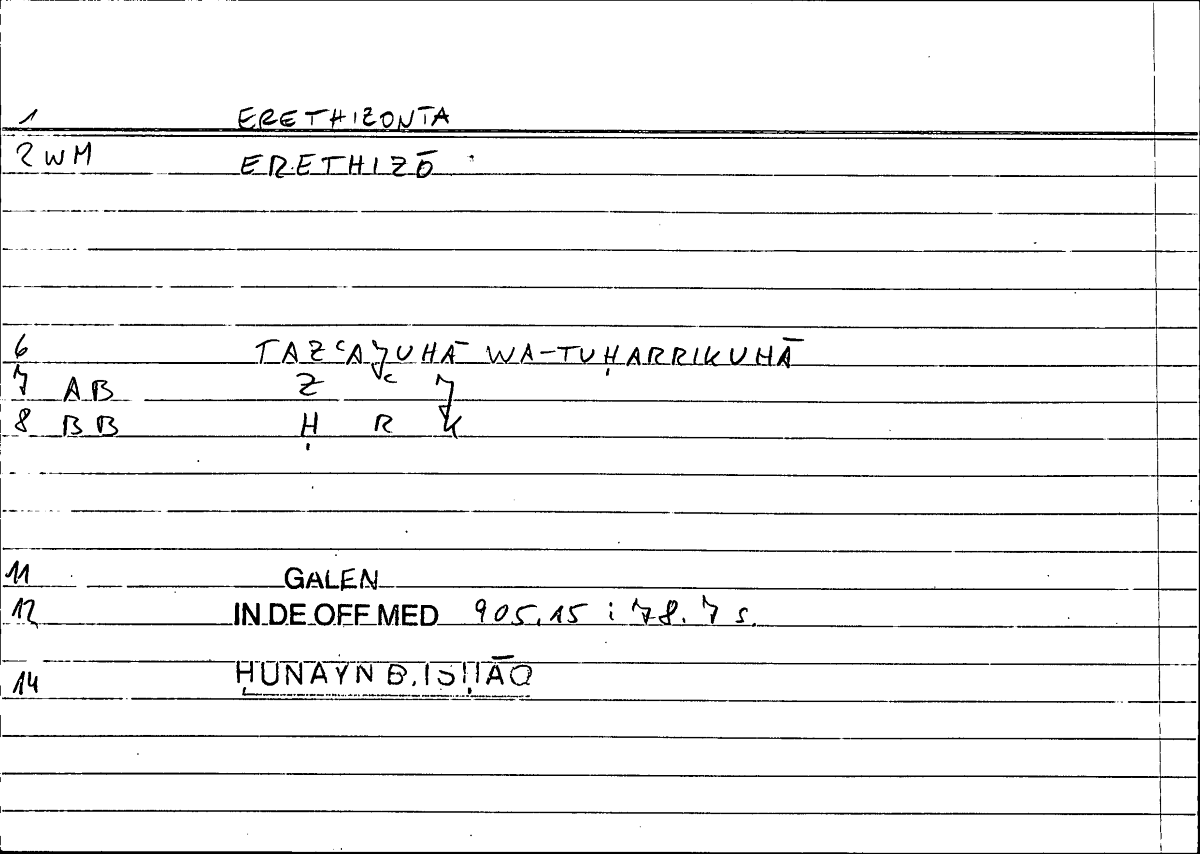 1 ERETHIZONTA
2 WM ERETHIZŌ
6 TAZʿAJUHĀ WA-TUḤARRIKUHĀ
7 AB Z ʿ J
8 BB Ḥ R K
11 GALEN
12 IN DE OFF MED 905.15 : 78.7 s.
14 ḤUNAYN B. ISḤĀQ